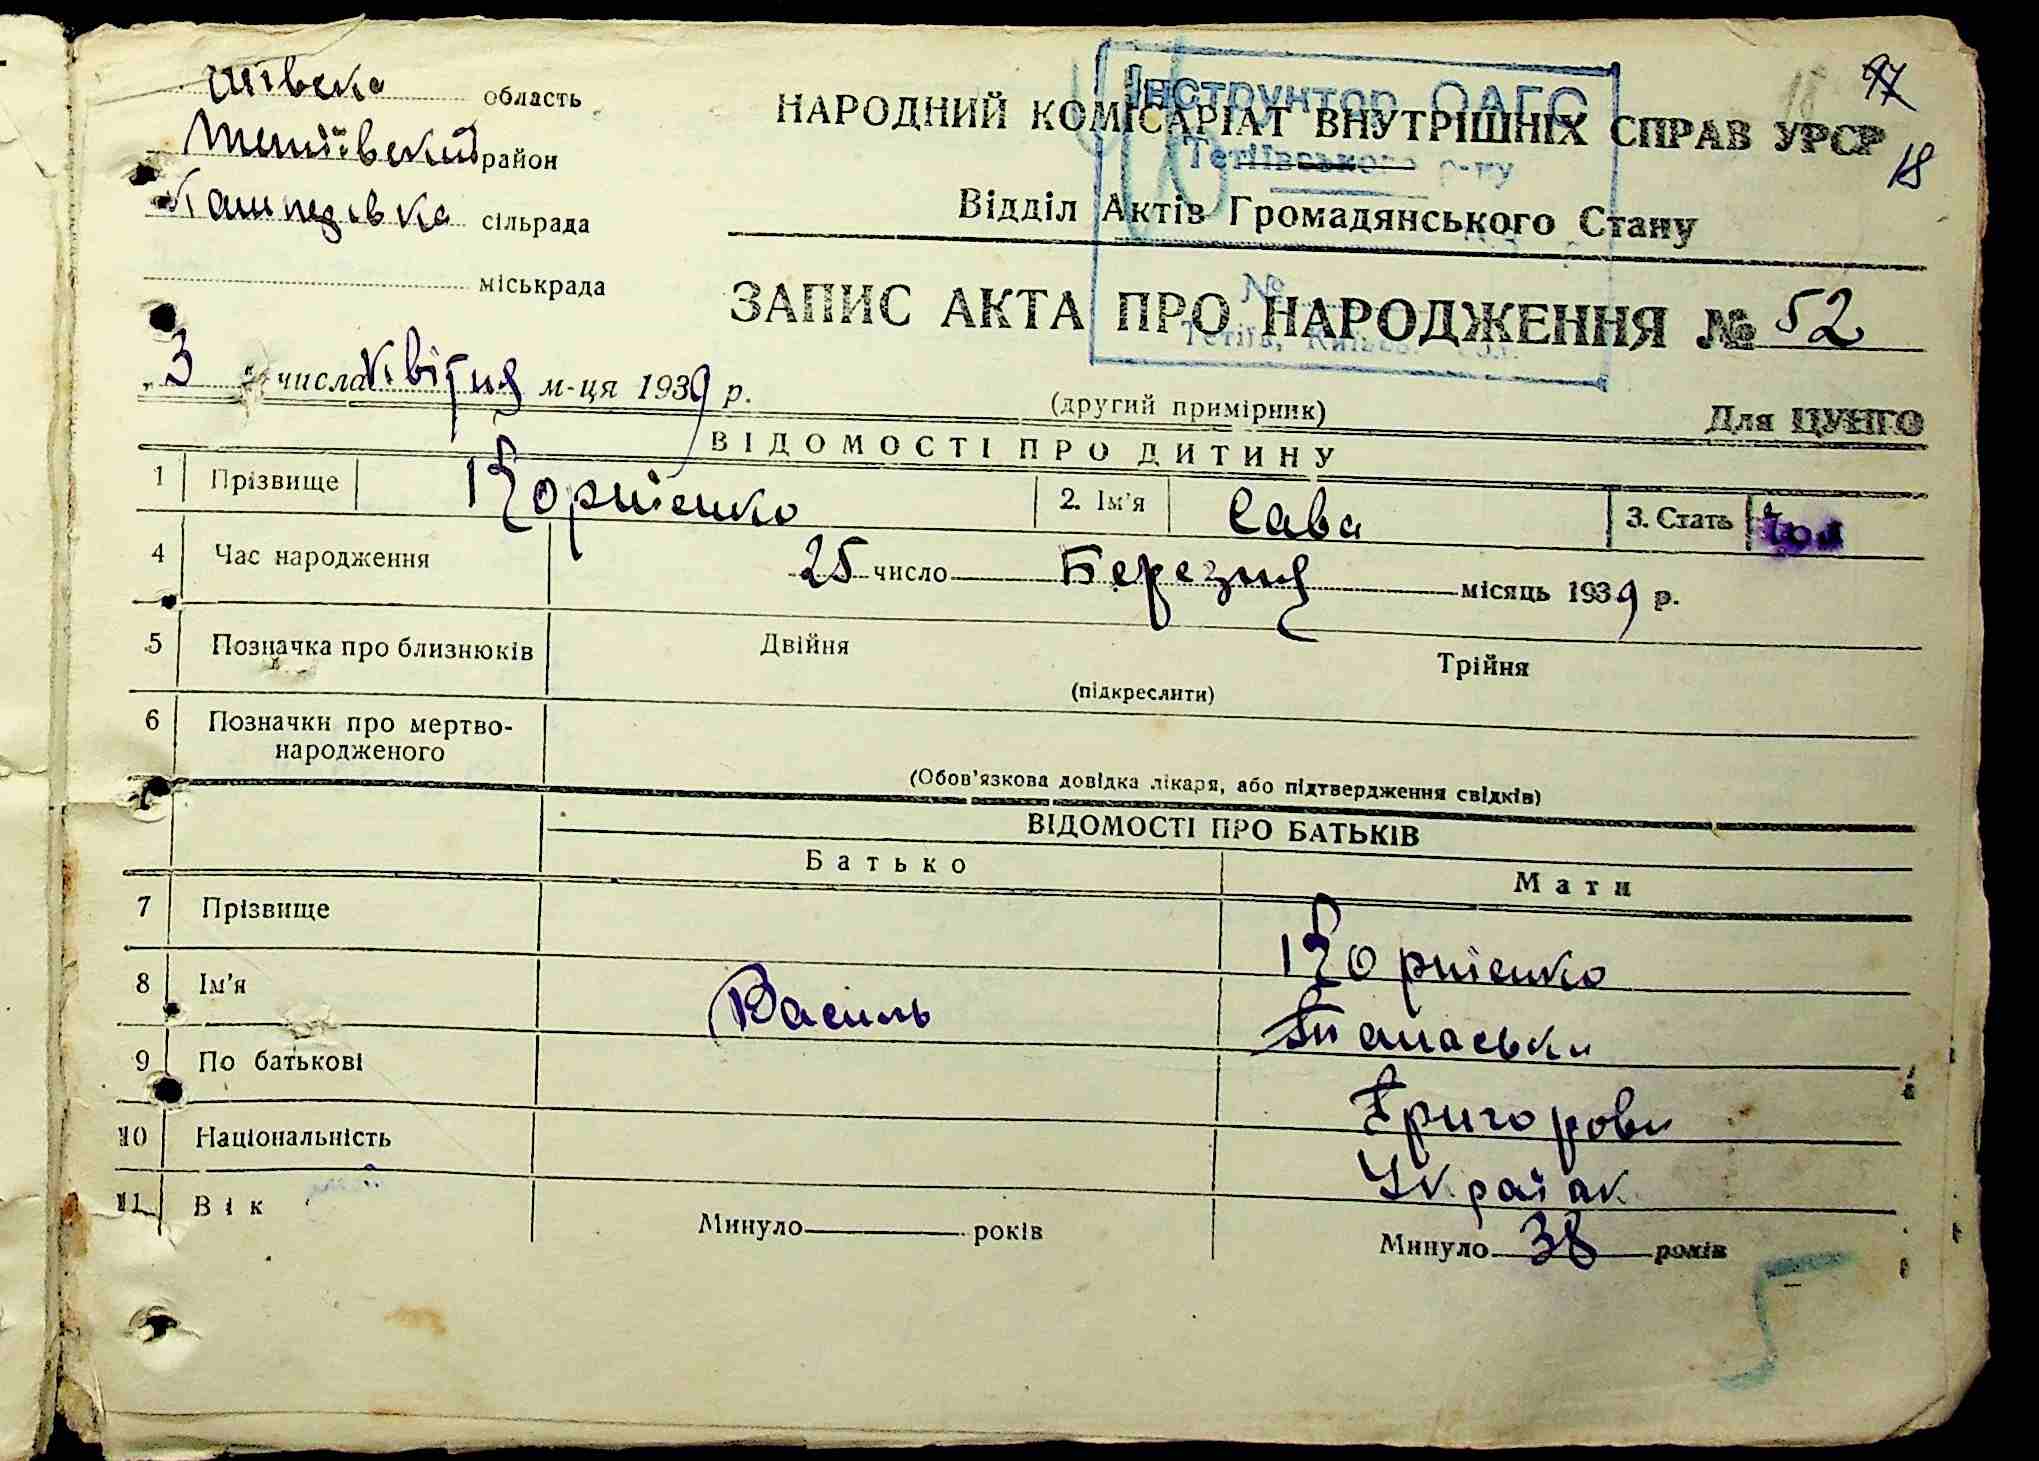 97
18
Київська область
Тетіївський район
Кашперівка сільрада
міськрада
НАРОДНИЙ КОМІСАРІАТ ВНУТРІШНІХ СПРАВ УРСР
Інструктор ОАГС
Тетіївського р-ну
№
Тетіїв, Київс. обл.
Відділ Актів Громадянського Стану
ЗАПИС АКТА ПРО НАРОДЖЕННЯ № 52
„ 3 " числа квітня м-ця 1939 р.
(другий примірник)
Для ЦУНГО
ВІДОМОСТІ ПРО ДИТИНУ
1 Прізвище Корнієнко 2. Ім'я Сава 3. Стать чол
4 Час народження 25 число Березня місяць 1939 р.
5 Позначка про близнюків Двійня Трійня
(підкреслити)
6 Позначки про мертво-
народженого
(Обов'язкова довідка лікаря, або підтвердження свідків)
ВІДОМОСТІ ПРО БАТЬКІВ
Батько Мати
7 Прізвище Корнієнко
8 Ім'я Василь
9 По батькові Григорови
10 Національність Україн
11 Вік Минуло років Минуло 38 років
5